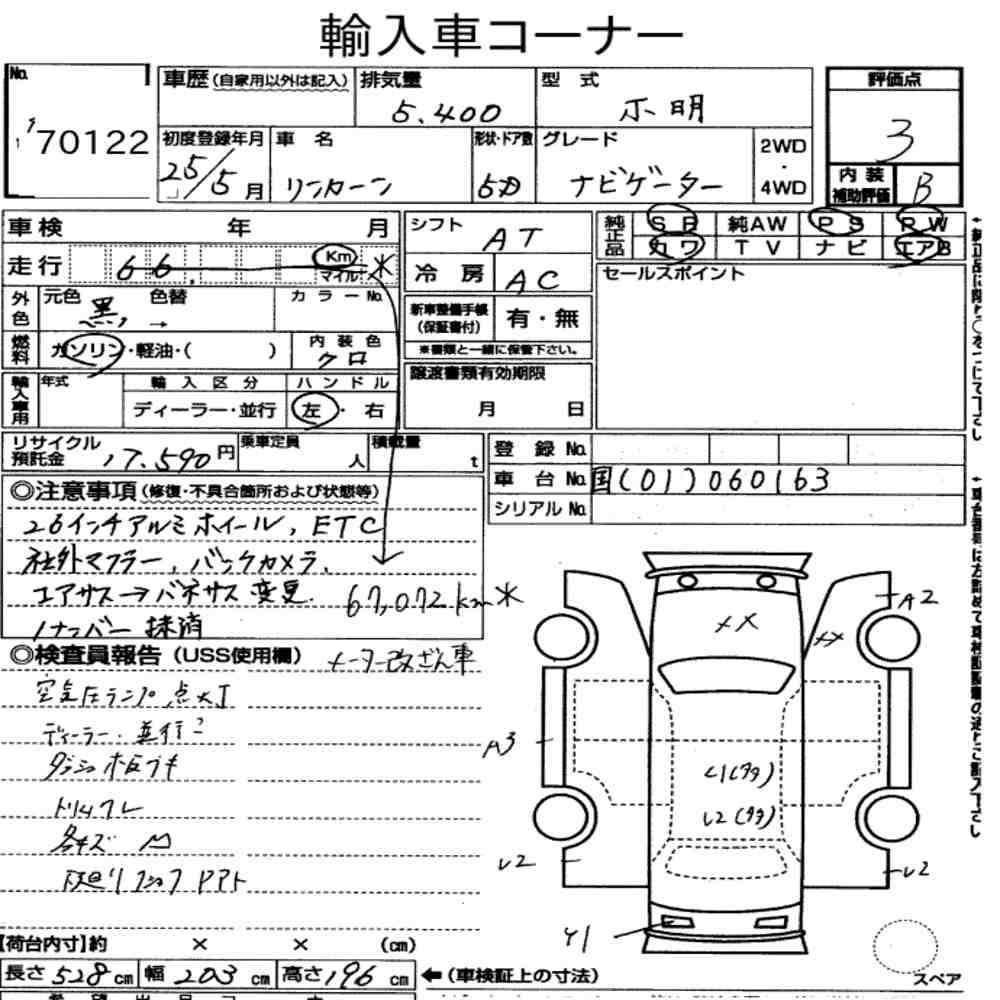 輸入車コーナー
No.
170122
車歴(自家用以外は記入)
排気量
5.400
型式
不明
評価点
3
初度登録年月
25/5月
車名
リンカーン
形状・ドア数
5D
グレード
ナビゲーター
2WD
・
4WD
内装
補助評価
B
車検 年 月
走行 66, Km マイル *
外色
元色 色替
黒, →
カラーNo.
燃料
ガソリン・軽油・( )
内装色
クロ
輸入車用
年式
輸入区分
ディーラー・並行
ハンドル
左・右
シフト
AT
冷房
AC
新車整備手帳
(保証書付)
有・無
※書類と一緒に保管下さい。
譲渡書類有効期限
月 日
純正品
SR 純AW PS PW
カワ TV ナビ エアB
セールスポイント
リサイクル
預託金
17.590円
乗車定員
人
積載量
t
登録No.
車台No. 国(01)060163
シリアルNo.
◎注意事項(修復・不具合箇所および状態等)
26インチアルミホイール, ETC
社外マフラー, バックカメラ,
エアサス→バネサス変更.
67,072km*
1ナンバー 抹消
◎検査員報告(USS使用欄)
メーター改ざん車
空気圧ランプ点灯
ディーラー・並行?
ダッシュ板ウキ
トリムクレ
各キズ M
XX
XX
A2
A3
L1(タタ)
L2(タタ)
L2
L2
Y1
スペア
【荷台内寸】約 × × (cm)
長さ528cm 幅203cm 高さ196cm ←(車検証上の寸法)